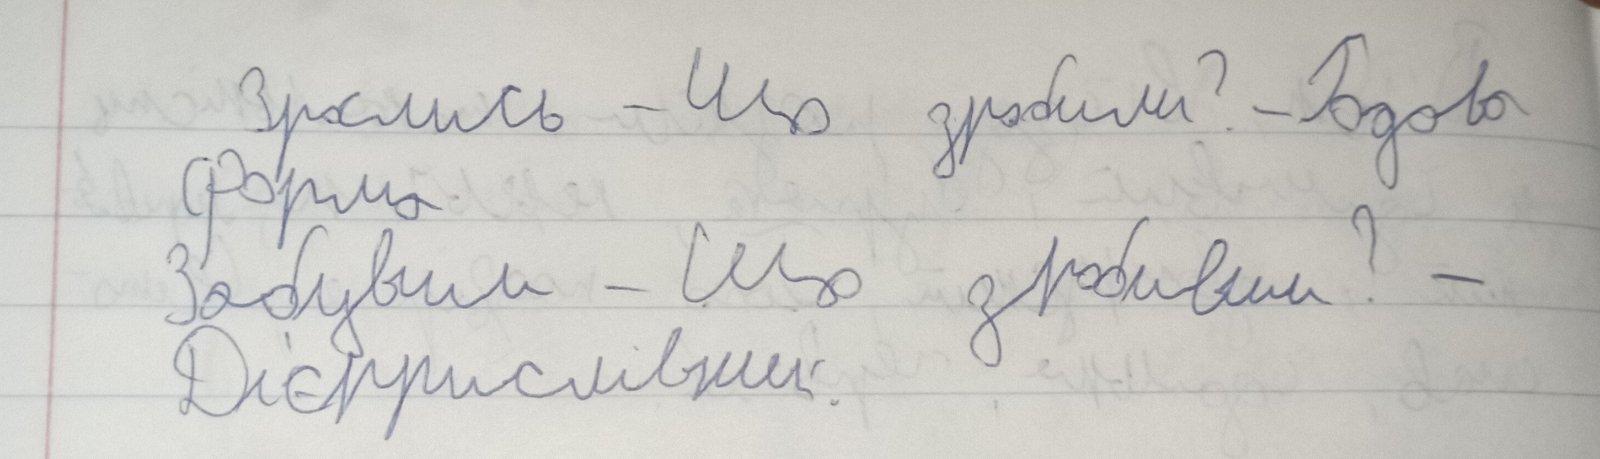 Зреклись – Що зробили? – Родова
форма
Забувши – Що зробивши? –
Дієприслівник.